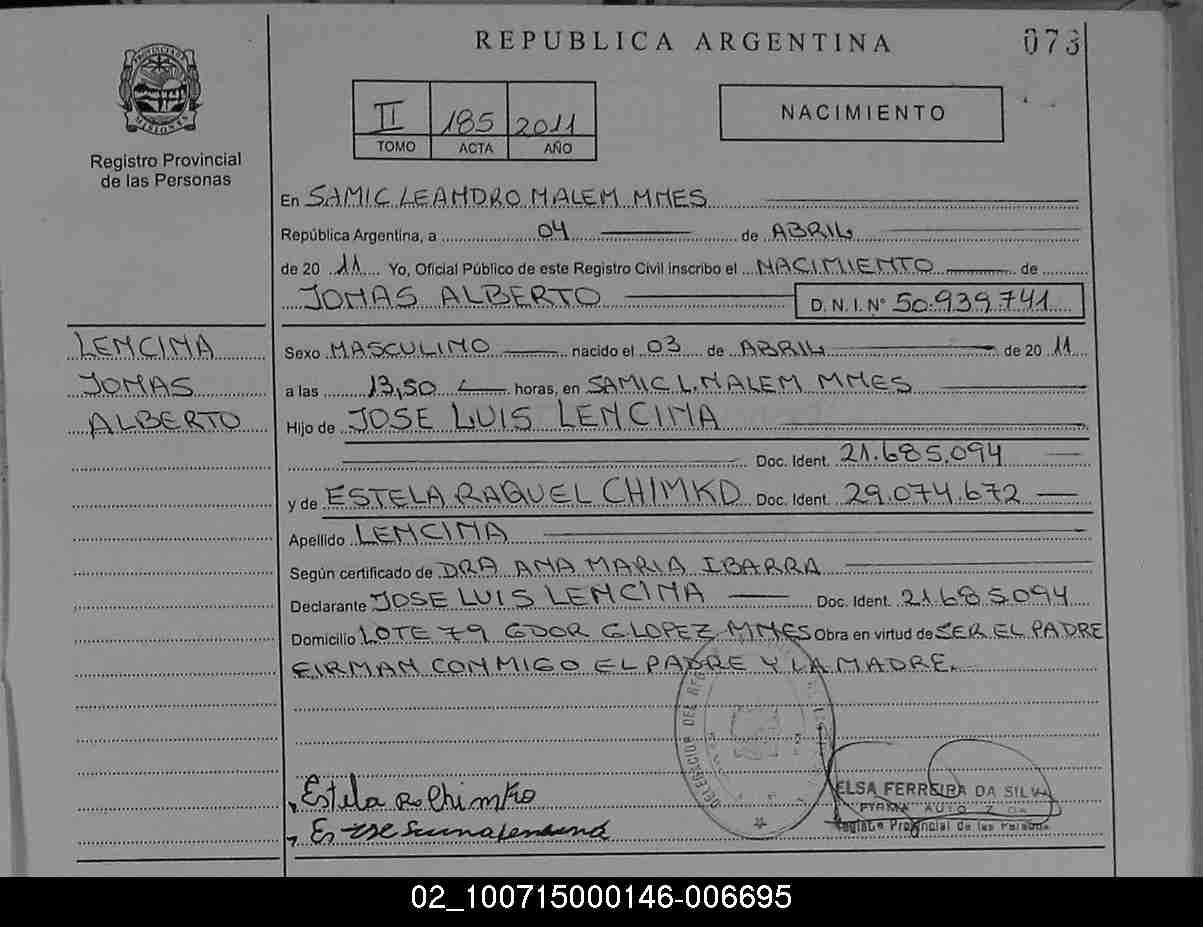 REPUBLICA ARGENTINA
073
PROVINCIA DE
MISIONES
Registro Provincial
de las Personas
II 185 2011
TOMO ACTA AÑO
NACIMIENTO
En SAMIC LEANDRO NALEM MNES
República Argentina, a 04 de ABRIL
de 20 11 Yo, Oficial Público de este Registro Civil inscribo el NACIMIENTO de
JONAS ALBERTO D. N. I. N° 50.939.741
LENCINA
JONAS
ALBERTO
Sexo MASCULINO nacido el 03 de ABRIL de 20 11
a las 13,50 horas, en SAMIC L. NALEM MNES
Hijo de JOSE LUIS LENCINA
Doc. Ident. 21.685.094
y de ESTELA RAQUEL CHIMKO Doc. Ident. 29.074.672
Apellido LENCINA
Según certificado de DRA ANA MARIA IBARRA
Declarante JOSE LUIS LENCINA Doc. Ident. 21.685.094
Domicilio LOTE 79 GDOR G LOPEZ-MNES Obra en virtud de SER EL PADRE
FIRMAN CONMIGO EL PADRE Y LA MADRE.
DELEGACION DEL REG
Estela R. Chimko
ELSA FERREIRA DA SILVA
FIRMA AUTO
Registro Provincial de las Personas
02_100715000146-006695